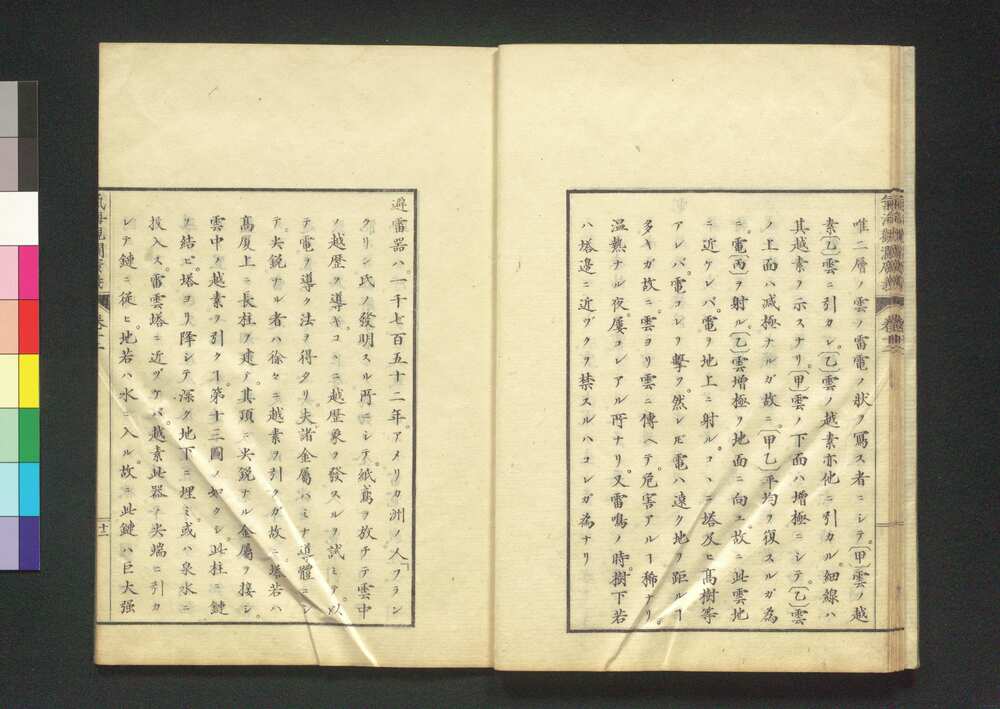 唯二層ノ雲ノ雷電ノ狀ヲ寫ス者ニシテ。〔甲〕雲ノ越
素〔乙〕雲ニ引カレ。〔乙〕雲ノ越素亦他ニ引カル。細線ハ
其越素ヲ示スナリ。〔甲〕雲ノ下面ハ增極ニシテ。〔乙〕雲
ノ上面ハ減極ナルガ故ニ。〔甲乙〕平均ヲ復スルガ為
ニ。電〔丙〕ヲ射ル。〔乙〕雲增極ヲ地面ニ向ユ。故ニ此雲地
ニ近ケレバ。電ヲ地上ニ射ル。コヽニ塔及ヒ髙樹等
アレバ。電コレヲ擊ツ。然レ𪜈電ハ遠ク地ヲ距ルヿ
多キガ故ニ。雲ヨリ雲ニ傳ヘテ。危害アルヿ稀ナリ。
温熱ナル夜。屢コレアル所ナリ。又雷鳴ノ時。樹下若
ハ塔邊ニ近ヅクヲ禁スルハコレガ為ナリ
避雷器ハ。一千七百五十二年。アメリカ洲ノ人「フラン
クリン氏ノ發明スル所ニシテ。紙鳶ヲ放チテ雲中
ノ越歴ヲ導キ。コヽニ越歴象ヲ發スルヲ試ミ。以
テ電ヲ導ク法ヲ得タリ。夫諸金屬ハミナ導體ニシ
テ。尖鋭ナル者ハ徐々ニ越素ヲ引クガ故ニ。塔若ハ
髙厦上ニ長柱ヲ建テ。其頂ニ尖鋭ナル金屬ヲ接シ。
雲中ノ越素ヲ引クヿ。第十三圖ノ如クシ。此柱ニ鏈
ヲ結ビ。塔ヨリ降シテ深ク地下ニ埋ミ。或ハ泉水ニ
投入ス。雷雲塔ニ近ヅケバ。越素此器ノ尖端ニ引カ
レテ鏈ニ從ヒ。地若ハ水ニ入ル。故ニ此鏈ハ巨大强